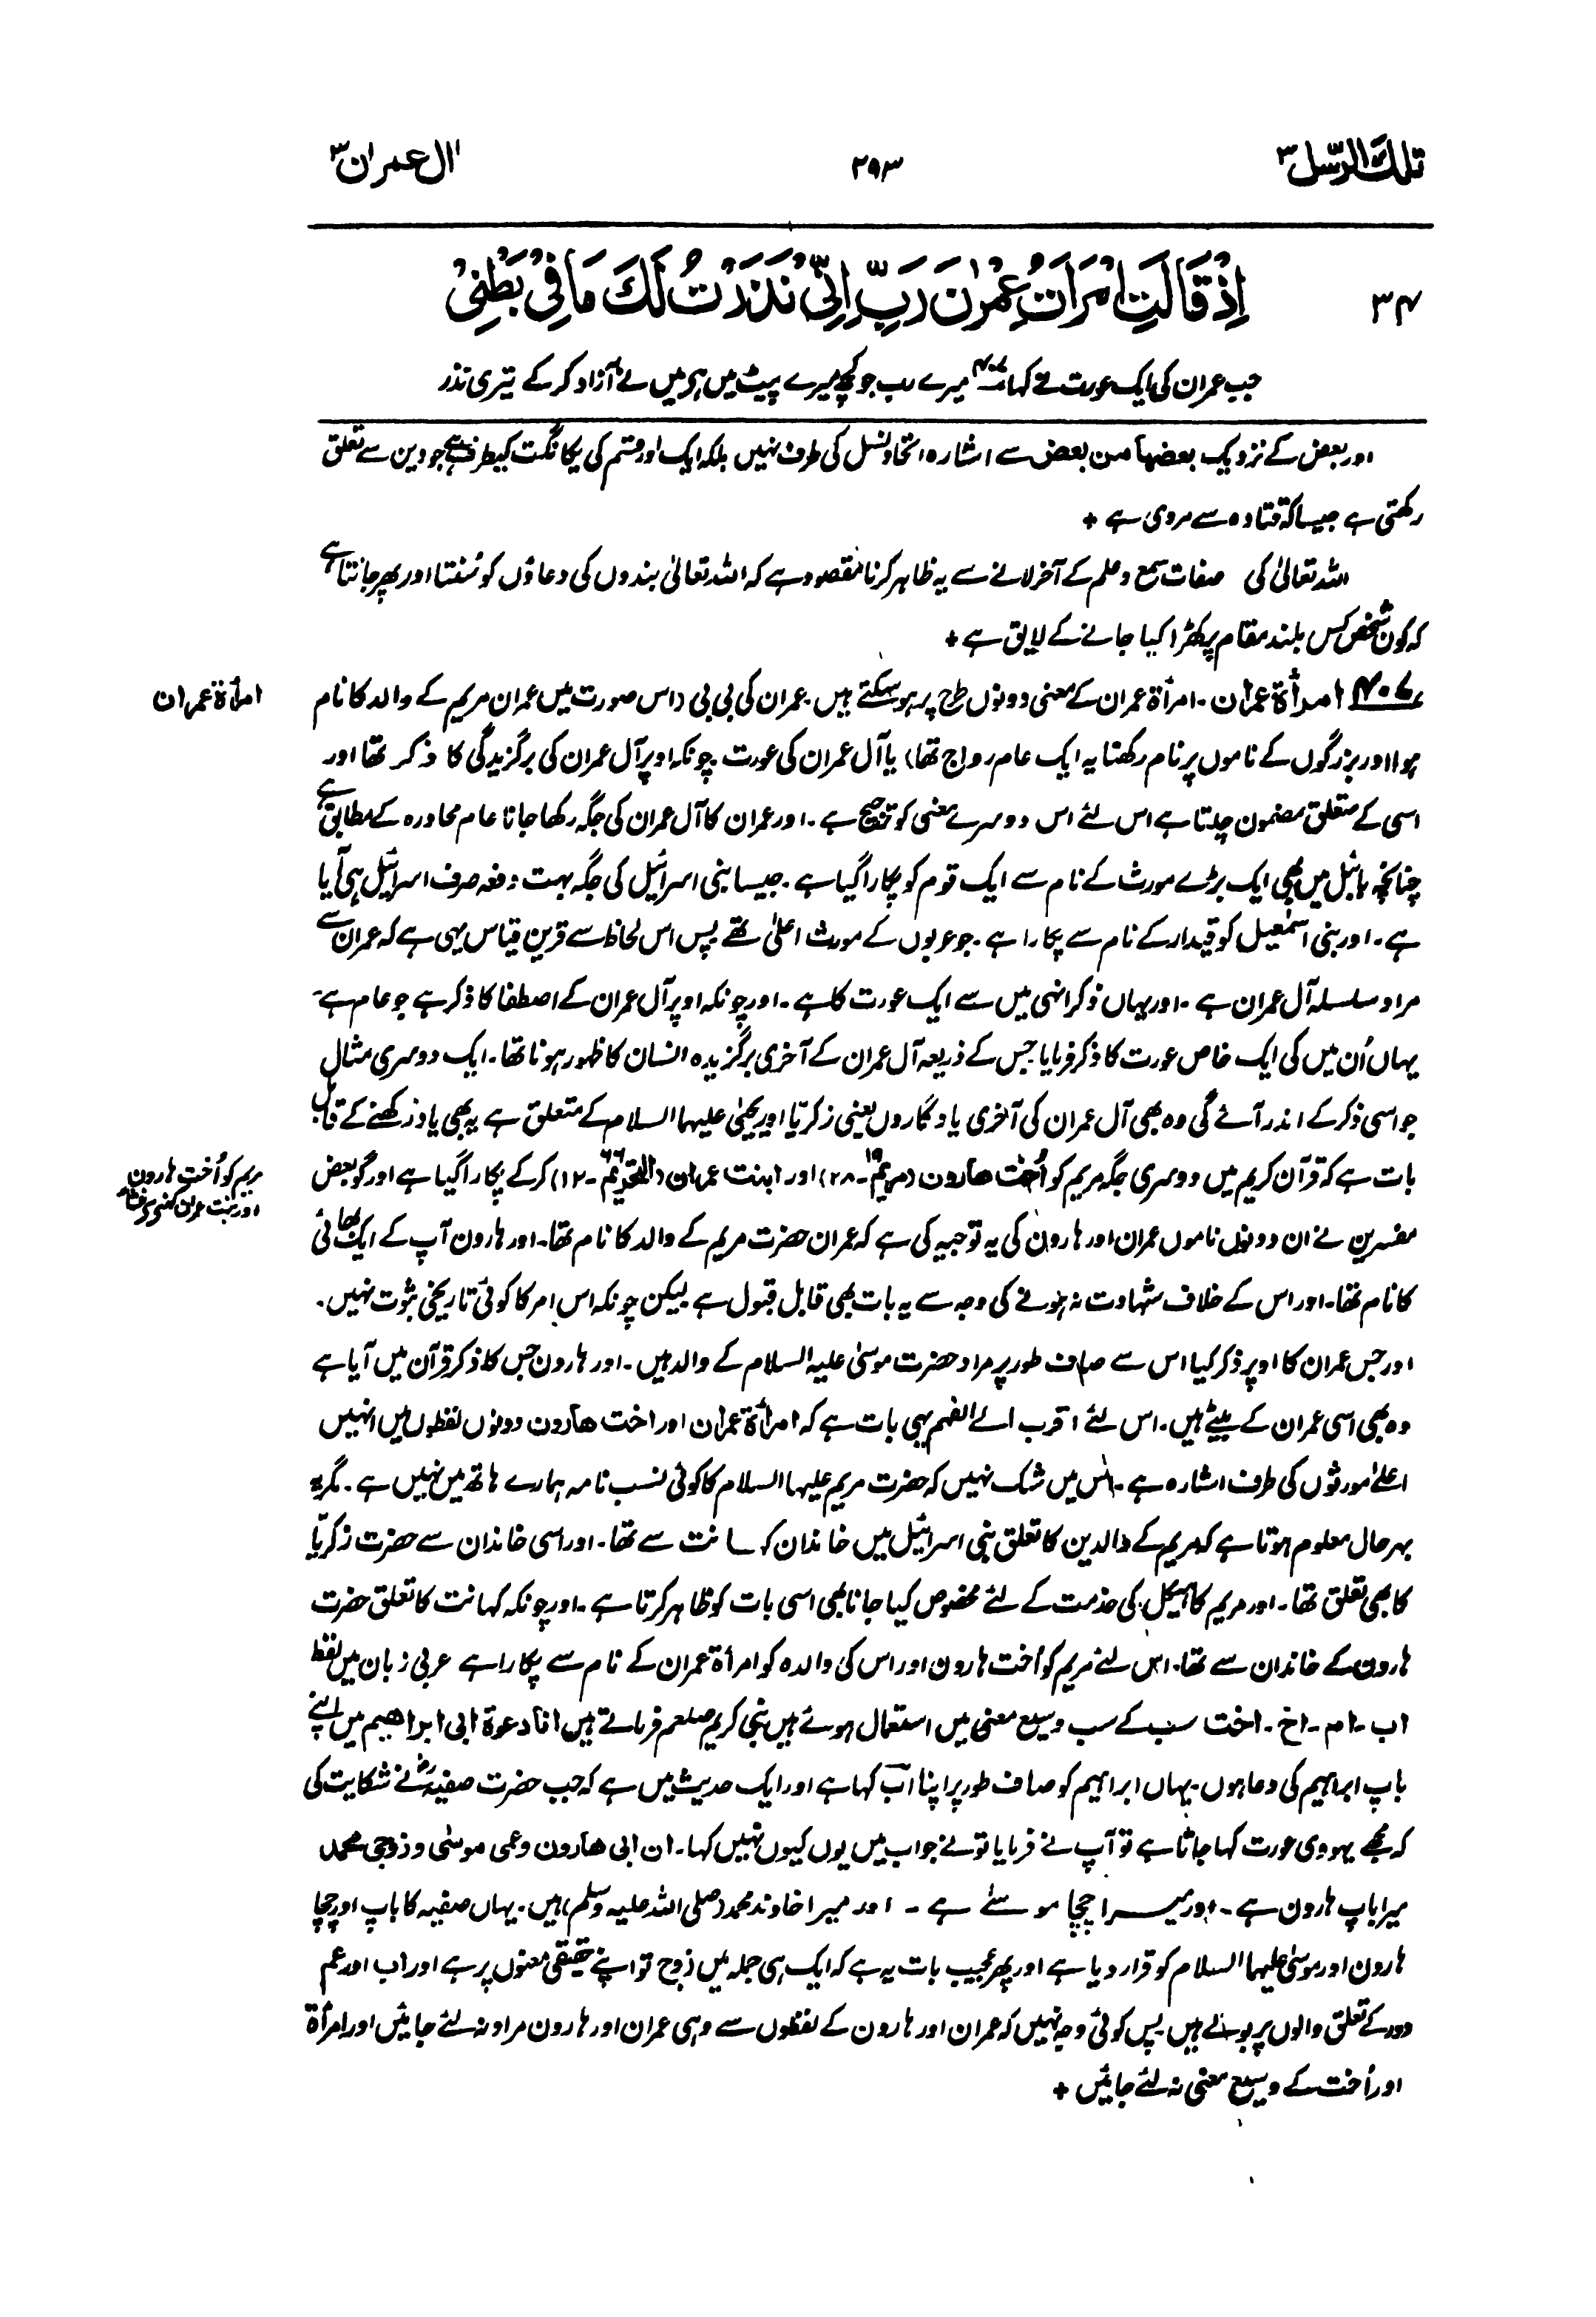 تلك الرسل ٣
٢٩٣
ال عمران ٣
٣٤
اِذْ قَالَتِ امْرَاَتُ عِمْرٰنَ رَبِّ اِنِّيْ نَذَرْتُ لَكَ مَا فِيْ بَطْنِيْ
جب عمران کی ایک عورت نے کہا ۴۰۷ میرے رب جو کچھ میرے پیٹ میں ہے میں نے آزاد کر کے تیری نذر
اور بعض کے نزدیک بعضها من بعض سے اشارہ اتحاد نسل کی طرف نہیں بلکہ ایک اور قسم کی یگانگت کیطرف ہے جو دین سے تعلق
رکھتی ہے جیسا کہ قتادہ سے مروی ہے +
اللہ تعالیٰ کی صفات سمع و علم کے آخر لانے سے یہ ظاہر کرنا مقصود ہے کہ اللہ تعالیٰ بندوں کی دعاؤں کو سُنتا اور پھر جانتا ہے
کہ کون شخص کس بلند مقام پر کھڑا کیا جانے کے لایق ہے +
امرأة عمران
۴۰۷ امرأة عمران ۔ امرأة عمران کے معنی دونوں طرح پر ہو سکتے ہیں ۔ عمران کی بی بی (اس صورت میں عمران مریم کے والد کا نام
ہوا اور بزرگوں کے ناموں پر نام رکھنا یہ ایک عام رواج تھا) یا آل عمران کی عورت چونکہ اوپر آل عمران کی برگزیدگی کا ذکر تھا اور
اسی کے متعلق مضمون چلتا ہے اس لئے اس دوسرے معنی کو ترجیح ہے ۔ اور عمران کا آل عمران کی جگہ رکھا جانا عام محاورہ کے مطابق ہے
چنانچہ بائبل میں بھی ایک بڑے مورث کے نام سے ایک قوم کو پکارا گیا ہے ۔ جیسا بنی اسرائیل کی جگہ بہت دفعہ صرف اسرائیل ہی آیا
ہے ۔ اور بنی اسمٰعیل کو قیدار کے نام سے پکارا ہے ۔ جو عربوں کے مورث اعلیٰ تھے پس اس لحاظ سے قرین قیاس یہی ہے کہ عمران سے
مراد سلسلہ آل عمران ہے ۔ اور یہاں ذکر انہی میں سے ایک عورت کا ہے ۔ اور چونکہ اوپر آل عمران کے اصطفا کا ذکر ہے جو عام ہے
یہاں اُن میں کی ایک خاص عورت کا ذکر فرمایا جس کے ذریعہ آل عمران کے آخری برگزیدہ انسان کا ظہور ہونا تھا ۔ ایک دوسری مثال
جو اسی ذکر کے اندر آئے گی وہ بھی آل عمران کی آخری یادگاروں یعنی زکریّا اور یحییٰ علیہما السلام کے متعلق ہے یہ بھی یاد رکھنے کے قابل
مریم کو اُختِ ہارون
اور بنت عمران کہنے کی
بات ہے کہ قرآن کریم میں دوسری جگہ مریم کو اُخت هارون (مریم ۱۹ ۔ ۲۸) اور ابنت عمران (التحریم ۶۶ ۔ ۱۲) کرکے پکارا گیا ہے اور گو بعض
مفسرین نے ان دونوں ناموں عمران اور ہارون کی یہ توجیہ کی ہے کہ عمران حضرت مریم کے والد کا نام تھا ۔ اور ہارون آپ کے ایک بھائی
کا نام تھا ۔ اور اس کے خلاف شہادت نہ ہونے کی وجہ سے یہ بات بھی قابل قبول ہے لیکن چونکہ اس امر کا کوئی تاریخی ثبوت نہیں ۔
اور جس عمران کا اوپر ذکر کیا اس سے صاف طور پر مراد حضرت موسیٰ علیہ السلام کے والد ہیں ۔ اور ہارون جس کا ذکر قرآن میں آیا ہے
وہ بھی اسی عمران کے بیٹے ہیں ۔ اس لئے اقرب الے الفہم یہی بات ہے کہ امرأة عمران اور اخت هارون دونوں لفظوں میں انہیں
اعلےٰ مورثوں کی طرف اشارہ ہے ۔ اس میں شک نہیں کہ حضرت مریم علیہا السلام کا کوئی نسب نامہ ہمارے ہاتھ میں نہیں ہے ۔ مگر یہ
بہر حال معلوم ہوتا ہے کہ مریم کے والدین کا تعلق بنی اسرائیل میں خاندان کہانت سے تھا ۔ اور اسی خاندان سے حضرت زکریّا
کا بھی تعلق تھا ۔ اور مریم کا ہیکل کی خدمت کے لئے مخصوص کیا جانا بھی اسی بات کو ظاہر کرتا ہے ۔ اور چونکہ کہانت کا تعلق حضرت
ہارون کے خاندان سے تھا ۔ اس لئے مریم کو اُخت ہارون اور اس کی والدہ کو امرأة عمران کے نام سے پکارا ہے عربی زبان میں لفظ
اب ۔ ام ۔ اخ ۔ اخت سب کے سب وسیع معنی میں استعمال ہوئے ہیں نبی کریم صلعم فرماتے ہیں انا دعوة ابی ابراهیم میں اپنے
باپ ابراہیم کی دعا ہوں ۔ یہاں ابراہیم کو صاف طور پر اپنا اَب کہا ہے اور ایک حدیث میں ہے کہ جب حضرت صفیہؓ نے شکایت کی
کہ مجھے یہودی عورت کہا جاتا ہے تو آپ نے فرمایا تو نے جواب میں یوں کیوں نہیں کہا ۔ ان ابی هارون وعمی موسٰی وزوجی محمد
میرا باپ ہارون ہے ۔ اور میرا چچا موسےٰ ہے ۔ اور میرا خاوند محمد (صلی اللہ علیہ وسلم) ہیں ۔ یہاں صفیہ کا باپ اور چچا
ہارون اور موسیٰ علیہما السلام کو قرار دیا ہے اور پھر عجیب بات یہ ہے کہ ایک ہی جملہ میں زوج تو اپنے حقیقی معنوں پر ہے اور اب اور عم
دور کے تعلق والوں پر بولے ہیں پس کوئی وجہ نہیں کہ عمران اور ہارون کے لفظوں سے وہی عمران اور ہارون مراد نہ لئے جائیں اور امرأة
اور اُخت کے وسیع معنی نہ لئے جائیں +